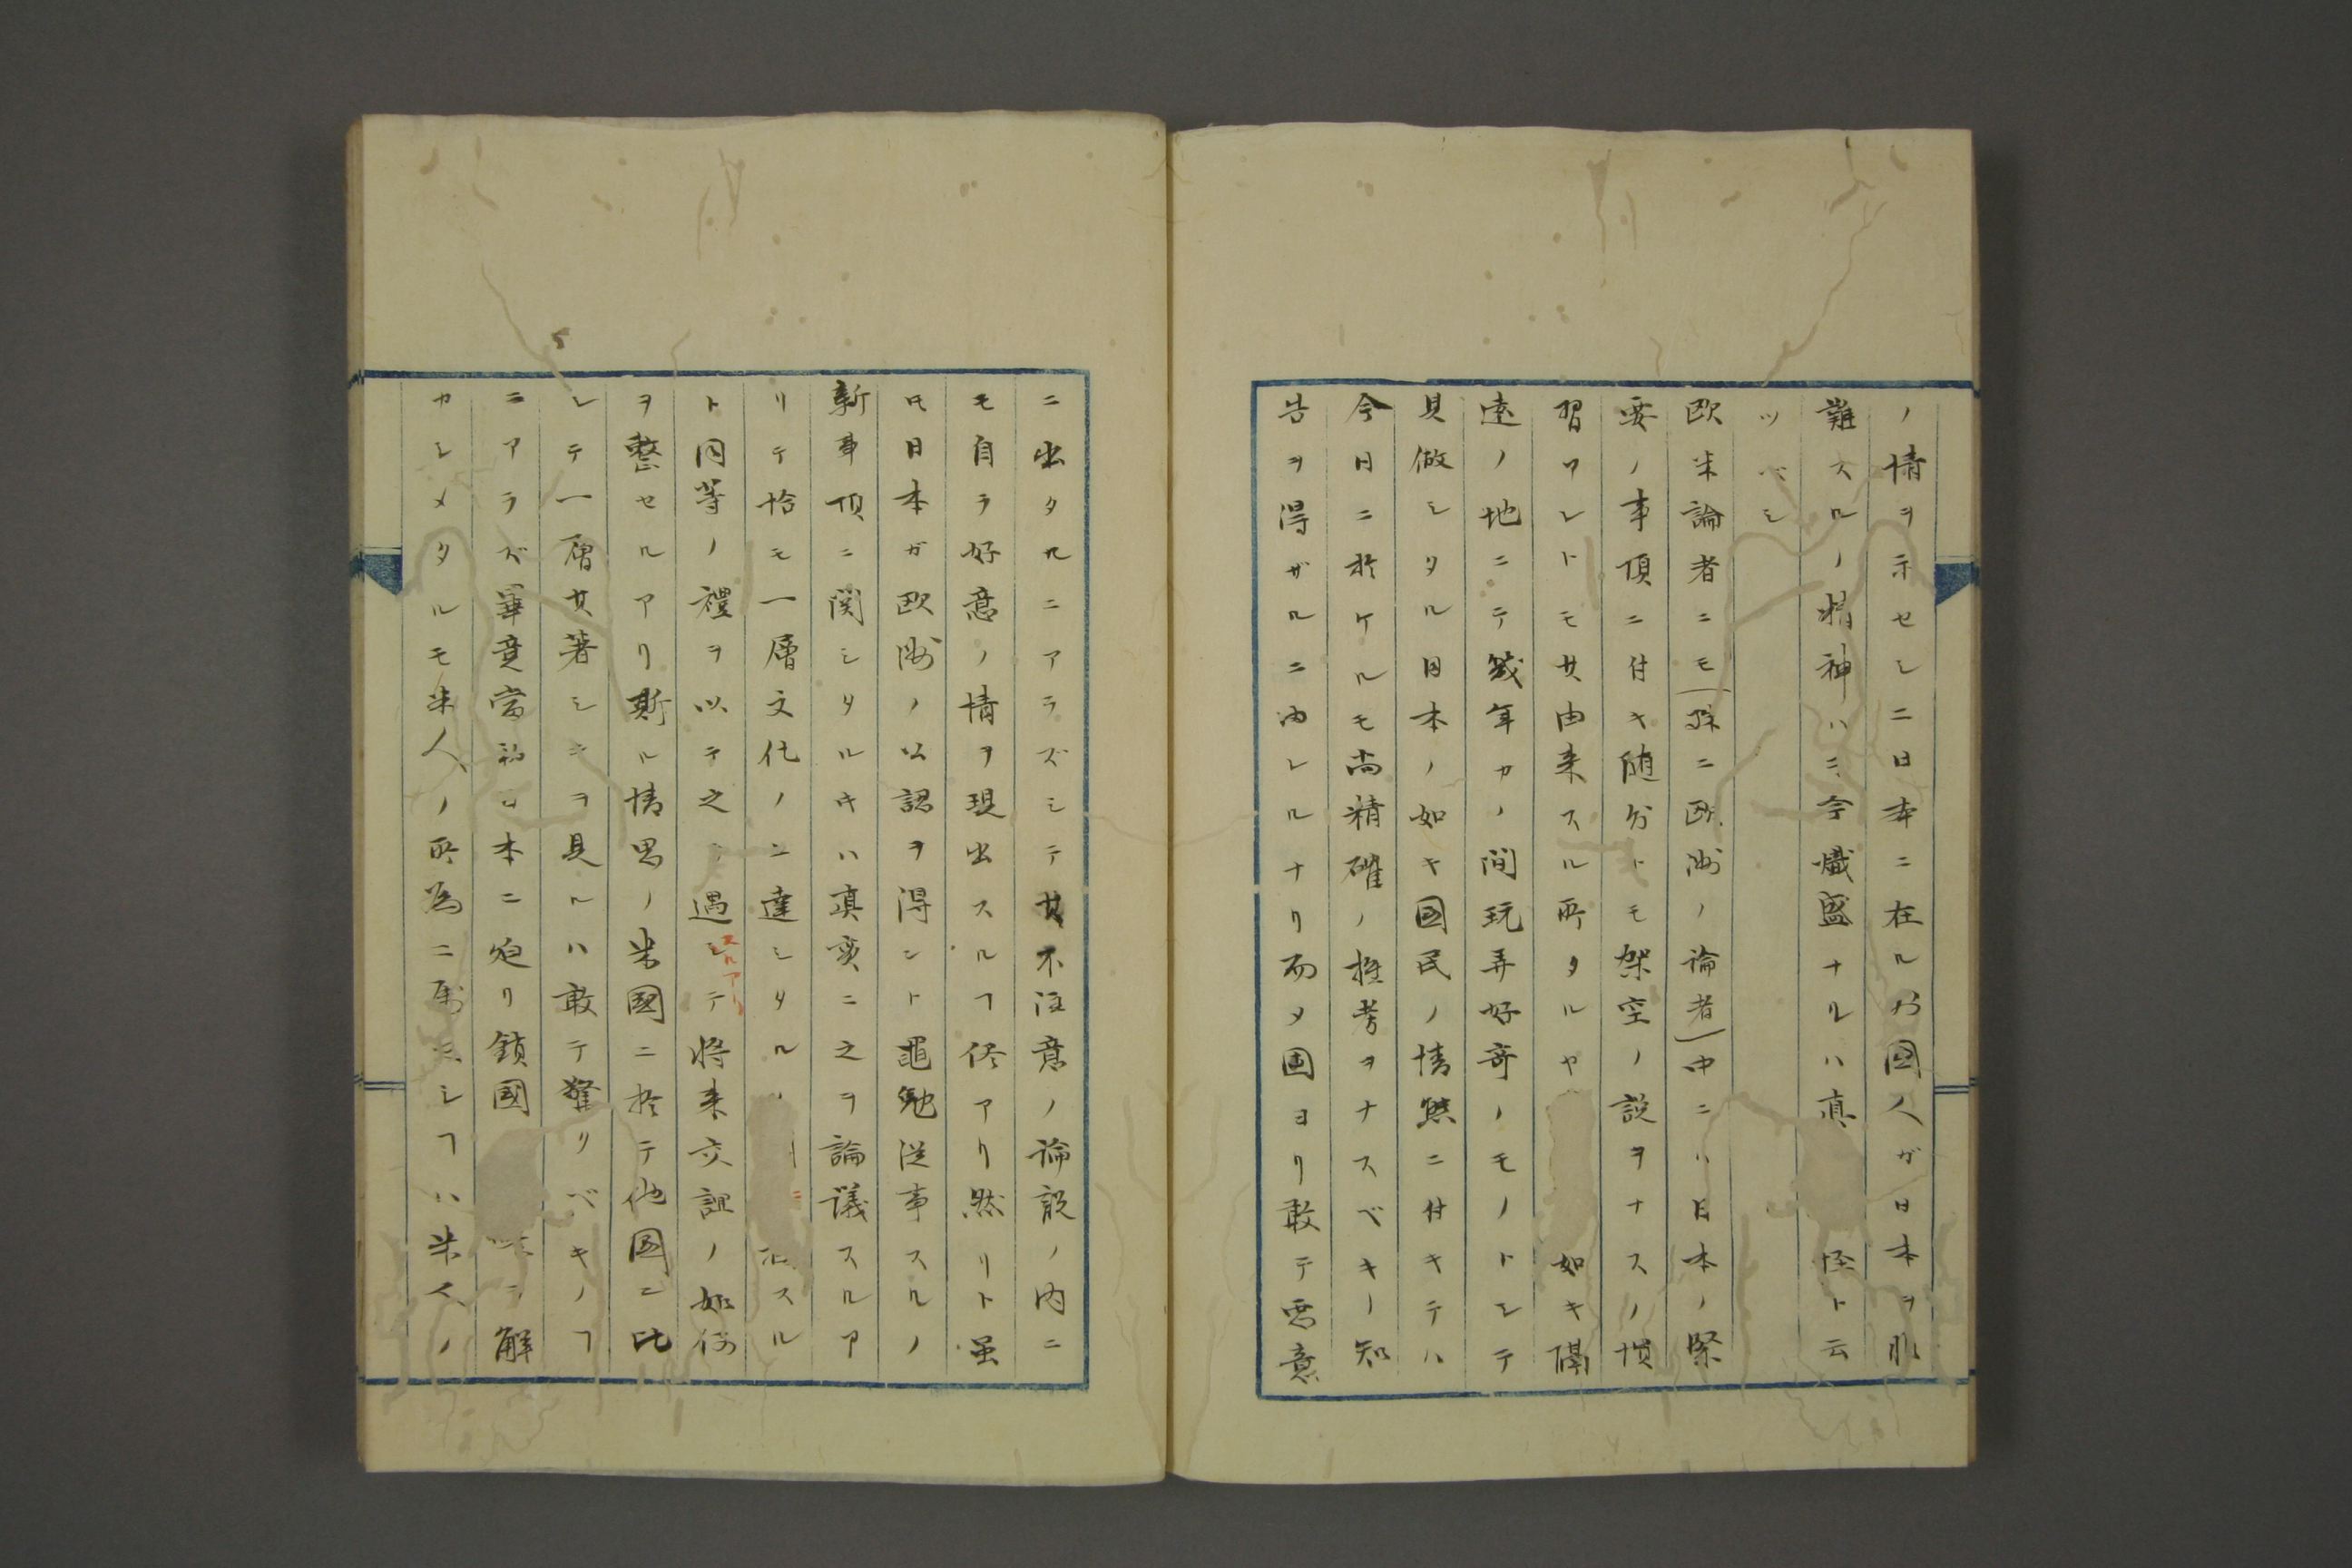 ノ情ヲ示セシニ日本ニ在ル乃國人ガ日本ヲ非
難スルノ精神ハ今熾盛ナルハ真 怪ト云
ツベシ
欧米論者ニモ(殊ニ欧洲ノ論者)中ニハ日本ノ緊
要ノ事項ニ付キ随分トモ架空ノ説ヲナスノ慣
習アレトモ其由来スル所タルヤ 如キ隔
遠ノ地ニテ幾年カノ間玩弄好奇ノモノトシテ
見做シタル日本ノ如キ國民ノ情態ニ付キテハ
今日ニ於ケルモ尚精確ノ推考ヲナスベキノ知
告ヲ得ザルニ由レルナリ而メ固ヨリ敢テ悪意
ニ出タルニアラズシテ其不注意ノ論説ノ内ニ
モ自ラ好意ノ情ヲ現出スルヿ侭アリ然リト虽
ㇳモ日本ガ欧洲ノ公認ヲ得ント黽勉従事スルノ
新事項ニ関シタルキハ真実ニ之ヲ論議スルア
リテ恰モ一層文化ノ 達シタル スル
ト同等ノ禮ヲ以テ之 遇シスルアリテ将来交誼ノ如何
ヲ整セルアリ斯ル情思ノ米國ニ於テ他國ニ比
シテ一層其著シキヲ見ルハ敢テ驚リベキノヿ
ニアラズ畢竟當初日本ニ迫リ鎖國 ニ解
カシメタルモ米人ノ所為ニ属 シヿハ米人ノ